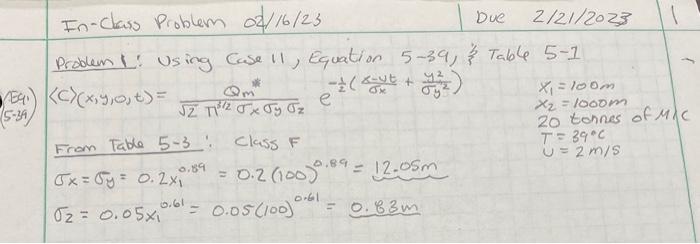 In-Class Problem 02/16/23 Due 2/21/2023 1
Problem 1: Using Case 11, Equation 5-39, & Table 5-1
(Eq. 5-39) <C>(x,y,0,t) = Qm* / √2 π^3/2 σx σy σz e^-1/2 (x-ut/σx + y²/σy²)
x1 = 100m
x2 = 1000m
20 tonnes of MIC
T = 39°C
U = 2 m/s
From Table 5-3: Class F
σx = σy = 0.2x1^0.89 = 0.2(100)^0.89 = 12.05m
σz = 0.05x1^0.61 = 0.05(100)^0.61 = 0.83m